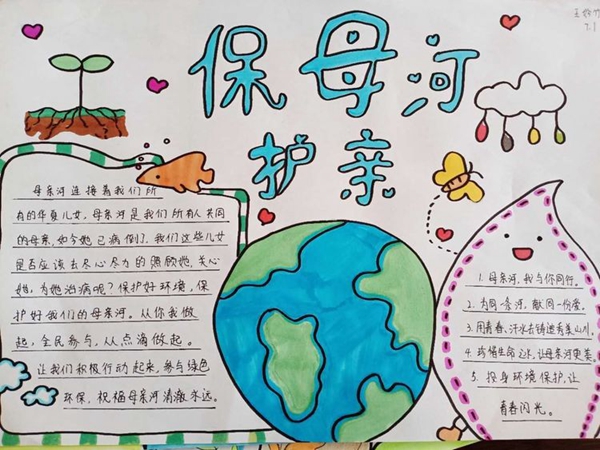 保母河
护亲
7.1
母亲河连接着我们所
有的华夏儿女。母亲河是我们所有人共同
的母亲,如今她已病倒了,我们这些儿女
是否应该去尽心尽力的照顾她,关心
她,为她治病呢?保护好环境,保
护好我们的母亲河。从你我做
起,全民参与,从点滴做起。
让我们积极行动起来,参与绿色
环保,祝福母亲河清澈永远。
1. 母亲河,我与你同行。
2. 为同一条河,献同一份爱。
3. 用青春、汗水在铸造秀美山川。
4. 珍惜生命之水,让母亲河更美。
5. 投身环境保护,让
青春闪光。